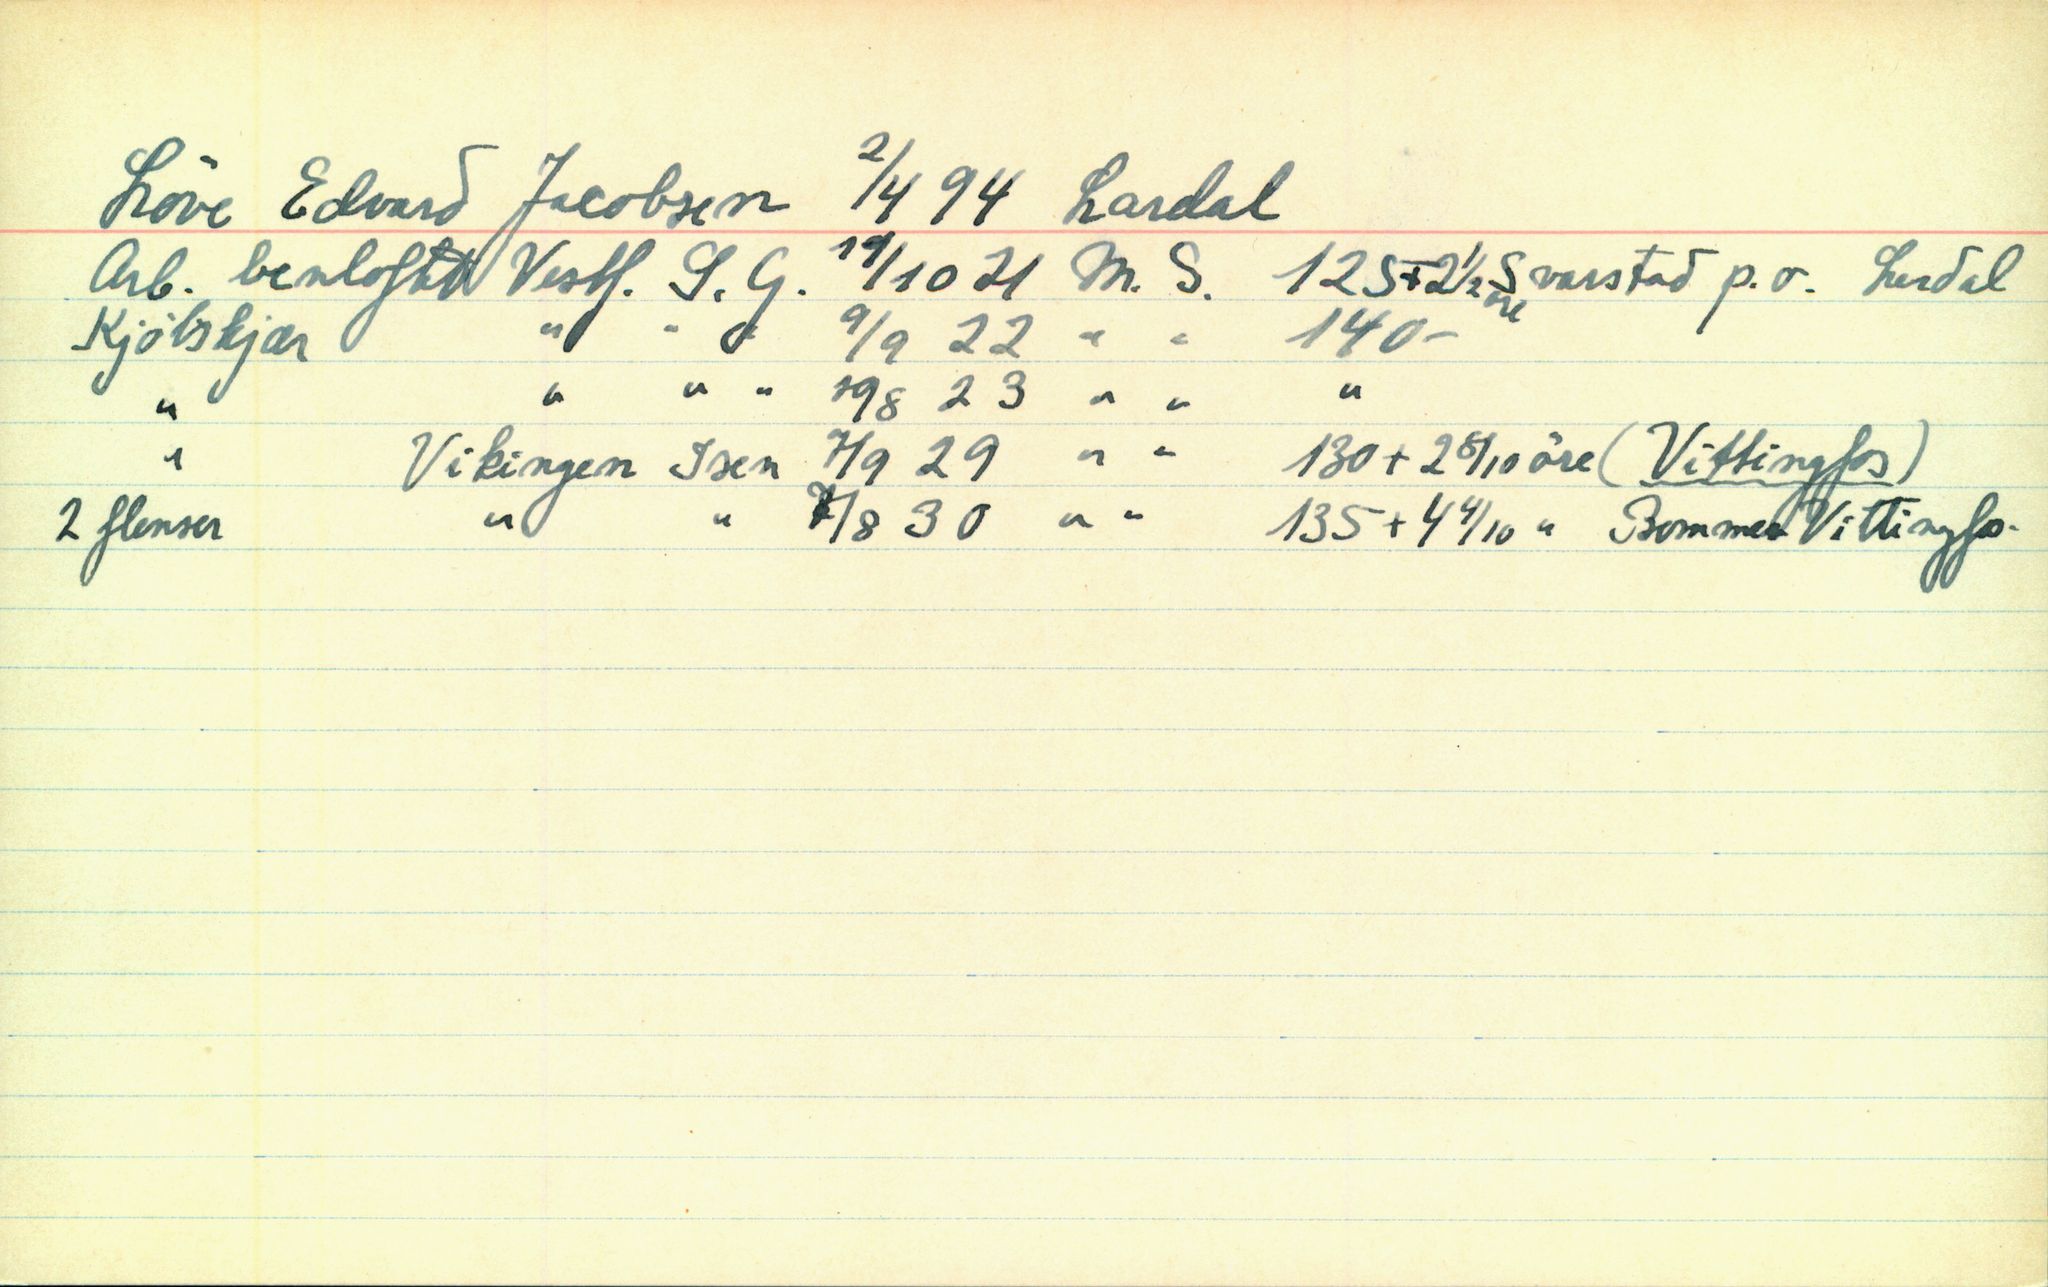 Löve Edvard Jacobsen 2/4 94 Lardal
Arb. benloftet Vestf. S. G. 19/10 21 M. S. 125+2 1/2 öre Svarstad p.o. Lardal
Kjötskjær " " " 9/9 22 " " 140-
" " " " 198 23 " " "
" Vikingen Isen 7/9 29 " " 130+2 8/10 öre (Vittingfos)
2 flenser " " 7/8 30 " " 135+4 4/10 " Bommen Vittingfos.